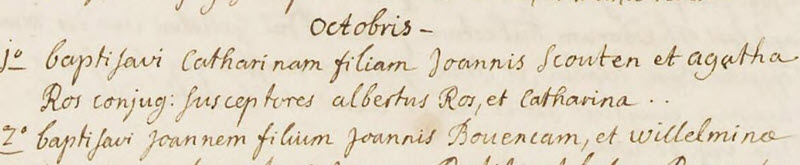 Octobris –
1º baptisavi Catharinam filiam Joannis Scouten et agatha
Ros conjug: susceptores albertus Ros, et Catharina . .
2º baptisavi Joannem filium Joannis Bouencam, et willelminæ